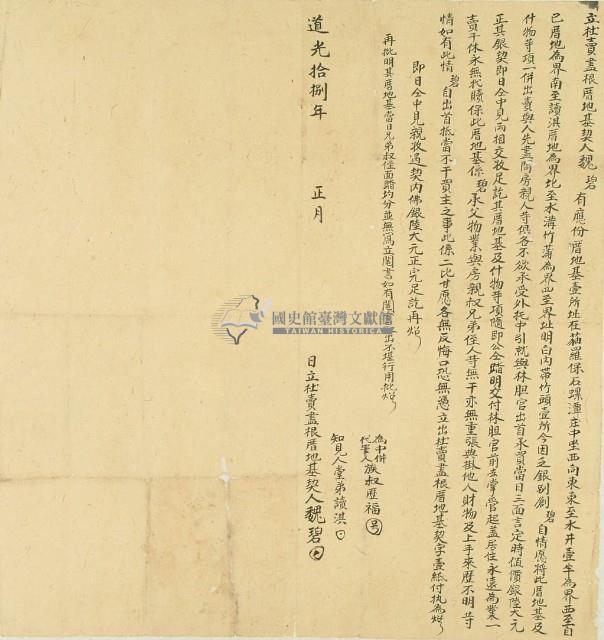 立杜賣盡根厝地基契人魏碧有應份厝地基壹所址在猫羅保石螺潭庄中坐西向東東至水井壹半為界西至自
已厝地為界南至讀淇厝地為界北至水溝竹蒲為界四至界址明白內帶竹頭壹所今因乏銀別創碧自情愿將此厝地基及
什物等項一併出賣與人先盡問房親人等俱各不欲承受外托中引就與林胆官出首承買當日三面言定時值價銀陸大元
正其銀契即日仝中見兩相交收足訖其厝地基及什物等項隨即公仝踏明交付林胆官前去掌管起盖居住永遠為業一
賣千休永無找贖保此厝地基係碧承父物業與房親叔兄弟侄人等無干亦無重張典掛他人財物及上手來歷不明等
情如有此情碧自出首抵當不干買主之事此係二比甘愿各無反悔口恐無憑立出杜賣盡根厝地基契字壹紙付執為炤
即日仝中見親收過契內佛銀陸大元正完足訖再炤
再批明其厝地基當日兄弟叔侄面踏均分並無寫立鬮書如有鬮出不堪行用批炤
為中併代筆人族叔歷福
知見人堂弟讀淇
道光拾捌年 正月 日立杜賣盡根厝地基契人魏碧
國史館臺灣文獻館
TAIWAN HISTORICA